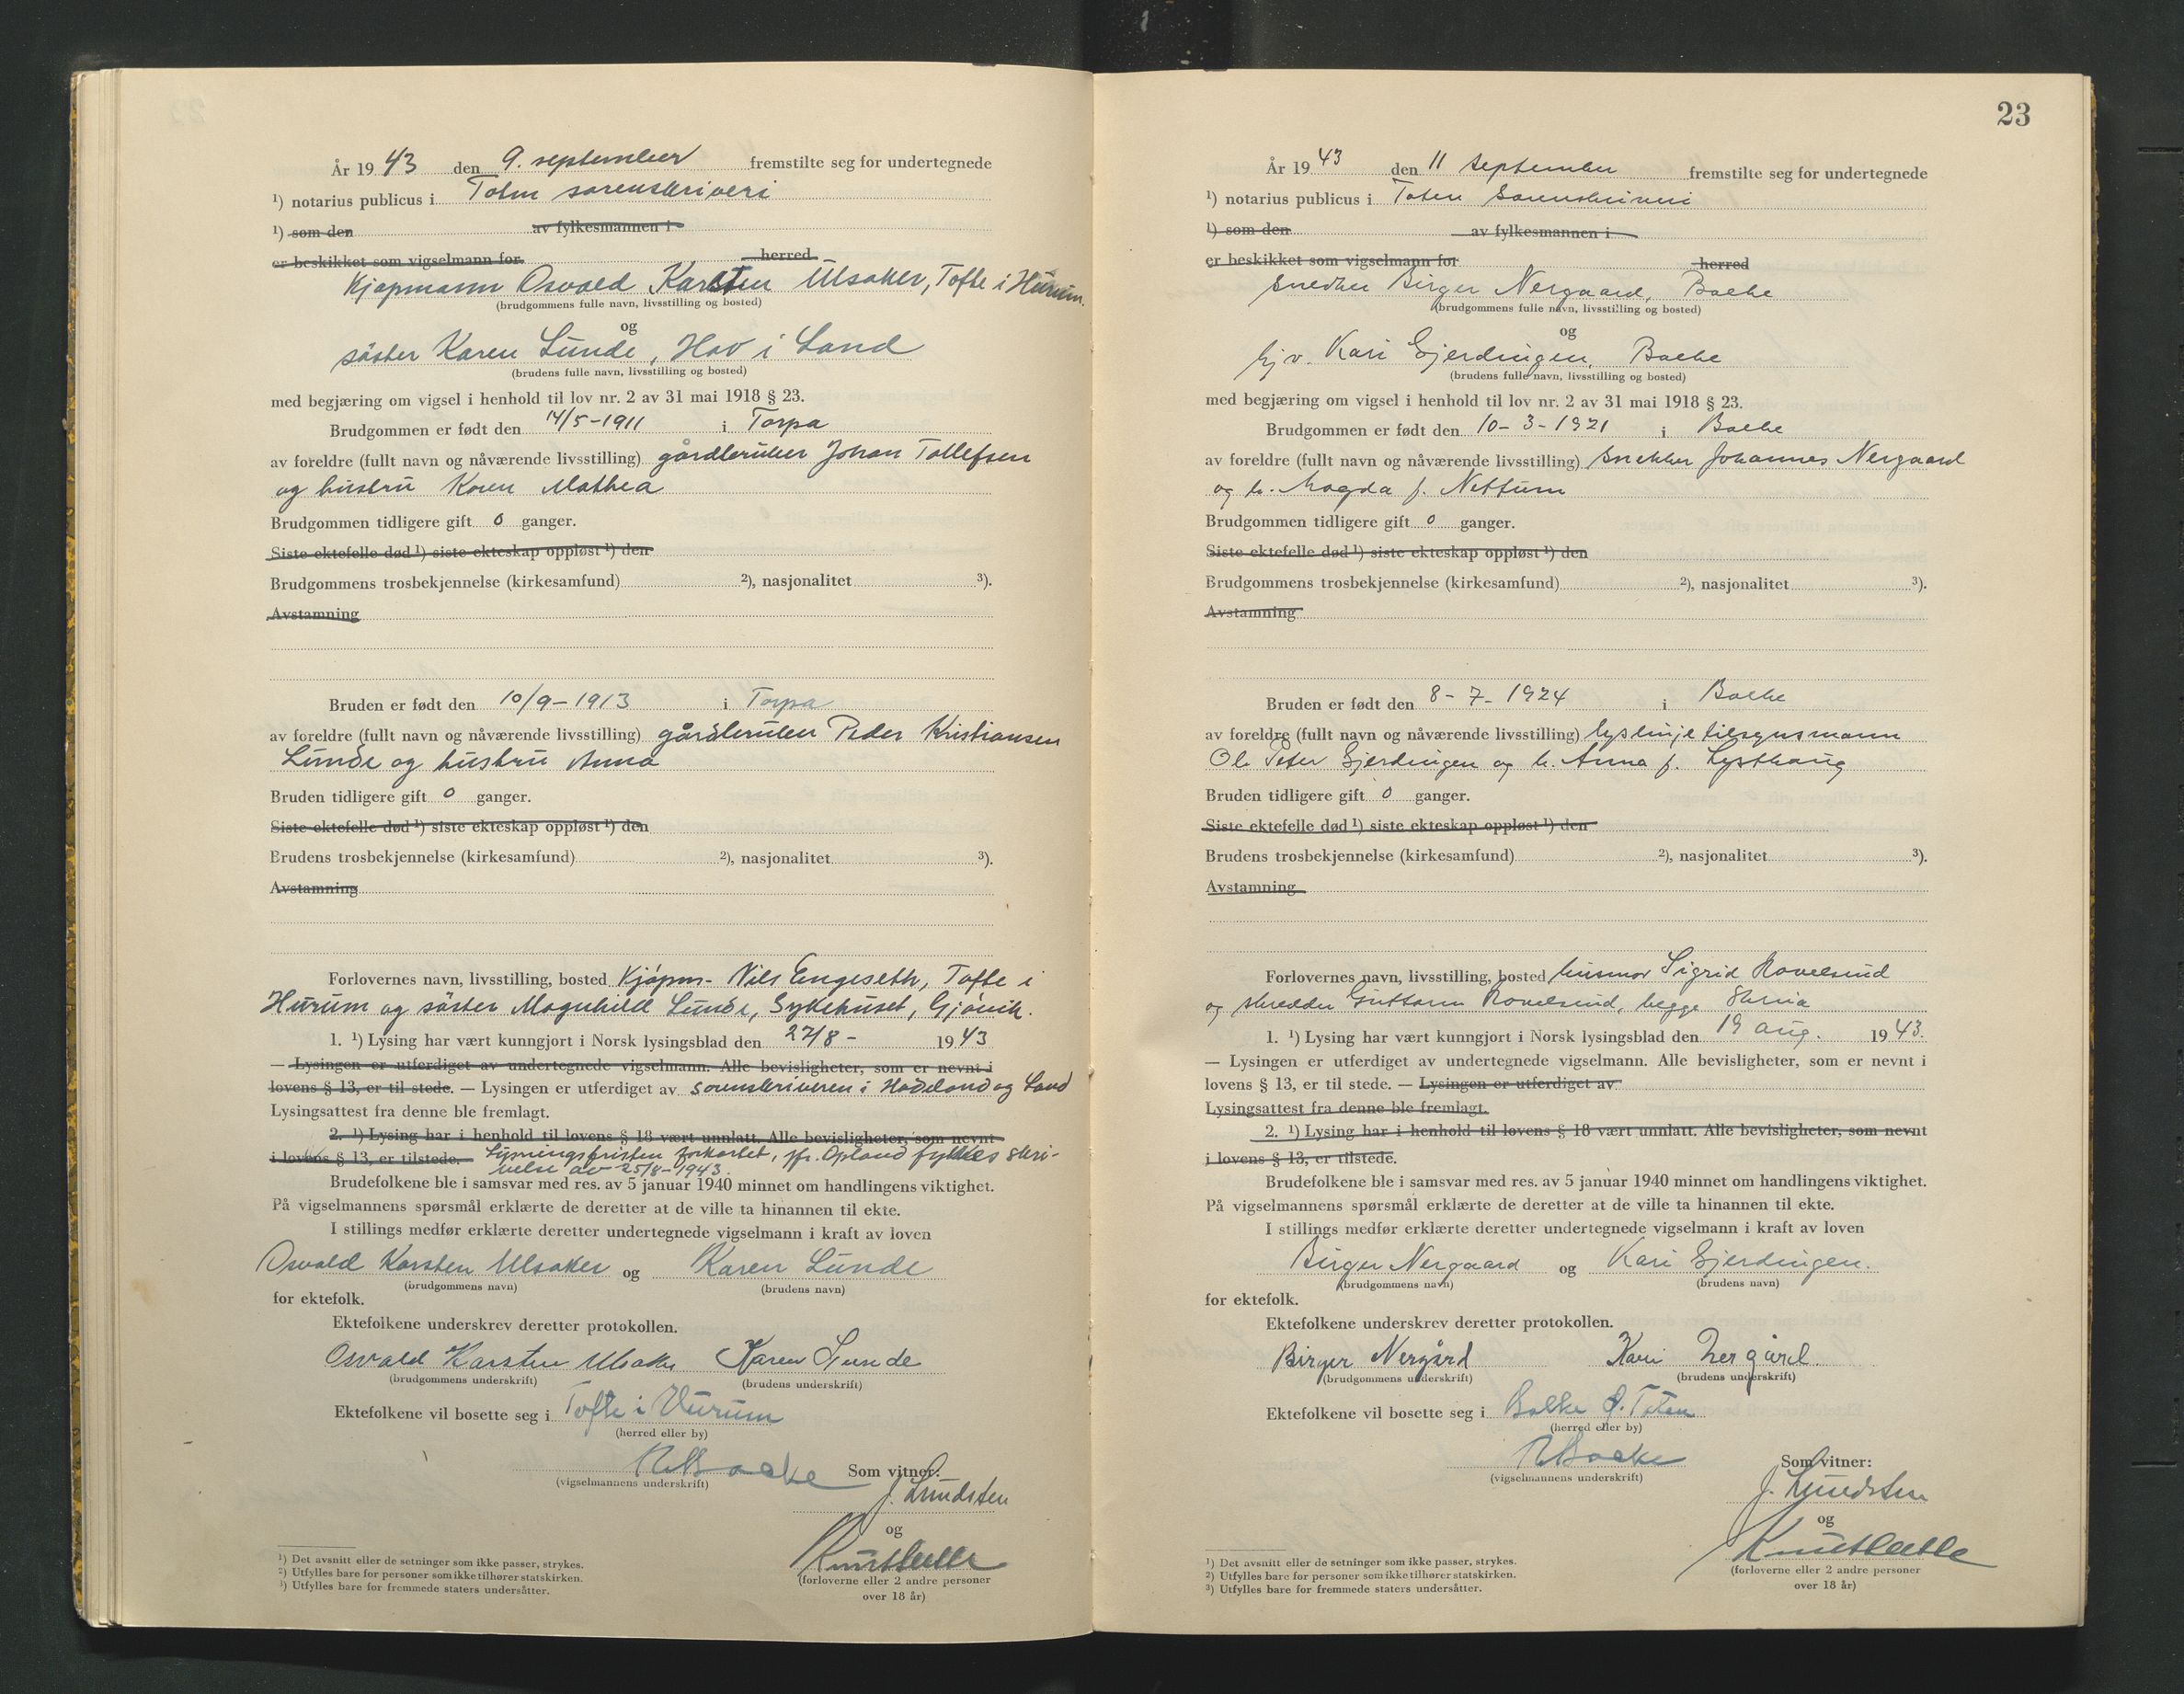 År 19 43 den 9. september fremstilte seg for undertegnede
¹) notarius publicus i Toten sorenskriveri
¹) som den av fylkesmannen i
er beskikket som vigselmann for herred
Kjøpmann Osvald Karsten Ulsaker, Tofte i Hurum.
(brudgommens fulle navn, livsstilling og bosted)
og
søster Karen Lunde, Hov i Land
(brudens fulle navn, livsstilling og bosted)
med begjæring om vigsel i henhold til lov nr. 2 av 31 mai 1918 § 23.
Brudgommen er født den 14/5-1911 i Torpa
av foreldre (fullt navn og nåværende livsstilling) gårdbruker Johan Tollefsen
og hustru Karen Mathea
Brudgommen tidligere gift 0 ganger.
Siste ektefelle død ¹) siste ekteskap oppløst ¹) den
Brudgommens trosbekjennelse (kirkesamfund) ²), nasjonalitet ³).
Avstamning
Bruden er født den 10/9-1913 i Torpa
av foreldre (fullt navn og nåværende livsstilling) gårdbruker Peder Kristiansen
Lunde og hustru Anna
Bruden tidligere gift 0 ganger.
Siste ektefelle død ¹) siste ekteskap oppløst ¹) den
Brudens trosbekjennelse (kirkesamfund) ²), nasjonalitet ³).
Avstamning
Forlovernes navn, livsstilling, bosted Kjøpm. Nils Engeseth, Tofte i
Hurum og søster Magnhild Lunde, Sykehuset, Gjøvik.
1. ¹) Lysing har vært kunngjort i Norsk lysingsblad den 27/8 - 19 43
— Lysingen er utferdiget av undertegnede vigselmann. Alle bevisligheter, som er nevnt i
lovens § 13, er til stede. — Lysingen er utferdiget av sorenskriveren i Hadeland og Land
Lysingsattest fra denne ble fremlagt.
2. ¹) Lysing har i henhold til lovens § 18 vært unnlatt. Alle bevisligheter, som nevnt
i lovens § 13, er tilstede. — Lysningsfristen forkortet, jfr. Opland fylkes skri-
velse av 25/8-1943.
Brudefolkene ble i samsvar med res. av 5 januar 1940 minnet om handlingens viktighet.
På vigselmannens spørsmål erklærte de deretter at de ville ta hinannen til ekte.
I stillings medfør erklærte deretter undertegnede vigselmann i kraft av loven
Osvald Karsten Ulsaker og Karen Lunde
(brudgommens navn) (brudens navn)
for ektefolk.
Ektefolkene underskrev deretter protokollen.
Osvald Karsten Ulsaker Karen Lunde
(brudgommens underskrift) (brudens underskrift)
Ektefolkene vil bosette seg i Tofte i Hurum
(herred eller by)
Som vitner:
(vigselmannens underskrift)
J. Lundsten
og
(forloverne eller 2 andre personer
over 18 år)
¹) Det avsnitt eller de setninger som ikke passer, strykes.
²) Utfylles bare for personer som ikke tilhører statskirken.
³) Utfylles bare for fremmede staters undersåtter.
23
År 19 43 den 11 september fremstilte seg for undertegnede
¹) notarius publicus i Toten Sorenskriveri
¹) som den av fylkesmannen i
er beskikket som vigselmann for herred
Snekker Birger Nergaard, Bolke
(brudgommens fulle navn, livsstilling og bosted)
og
hj.v. Kari Gjerdingen, Bolke
(brudens fulle navn, livsstilling og bosted)
med begjæring om vigsel i henhold til lov nr. 2 av 31 mai 1918 § 23.
Brudgommen er født den 10-3-1921 i Bolke
av foreldre (fullt navn og nåværende livsstilling) snekker Johannes Nergaard
og h. Magda f. Nettum
Brudgommen tidligere gift 0 ganger.
Siste ektefelle død ¹) siste ekteskap oppløst ¹) den
Brudgommens trosbekjennelse (kirkesamfund) ²), nasjonalitet ³).
Avstamning
Bruden er født den 8-7-1924 i Bolke
av foreldre (fullt navn og nåværende livsstilling) lyslinjetilsynsmann
Ole Peter Gjerdingen og h. Anna f. Lysthaug
Bruden tidligere gift 0 ganger.
Siste ektefelle død ¹) siste ekteskap oppløst ¹) den
Brudens trosbekjennelse (kirkesamfund) ²), nasjonalitet ³).
Avstamning
Forlovernes navn, livsstilling, bosted husmor Sigrid Rovelsrud
og skredder Guttorm Rovelsrud, begge Skreia
1. ¹) Lysing har vært kunngjort i Norsk lysingsblad den 19 aug. 19 43.
— Lysingen er utferdiget av undertegnede vigselmann. Alle bevisligheter, som er nevnt i
lovens § 13, er til stede. — Lysingen er utferdiget av
Lysingsattest fra denne ble fremlagt.
2. ¹) Lysing har i henhold til lovens § 18 vært unnlatt. Alle bevisligheter, som nevnt
i lovens § 13, er tilstede.
Brudefolkene ble i samsvar med res. av 5 januar 1940 minnet om handlingens viktighet.
På vigselmannens spørsmål erklærte de deretter at de ville ta hinannen til ekte.
I stillings medfør erklærte deretter undertegnede vigselmann i kraft av loven
Birger Nergaard og Kari Gjerdingen.
(brudgommens navn) (brudens navn)
for ektefolk.
Ektefolkene underskrev deretter protokollen.
Birger Nergård Kari Nergård.
(brudgommens underskrift) (brudens underskrift)
Ektefolkene vil bosette seg i Bolke Ø. Toten
(herred eller by)
Som vitner:
(vigselmannens underskrift)
J. Lundsten
og
(forloverne eller 2 andre personer
over 18 år)
¹) Det avsnitt eller de setninger som ikke passer, strykes.
²) Utfylles bare for personer som ikke tilhører statskirken.
³) Utfylles bare for fremmede staters undersåtter.